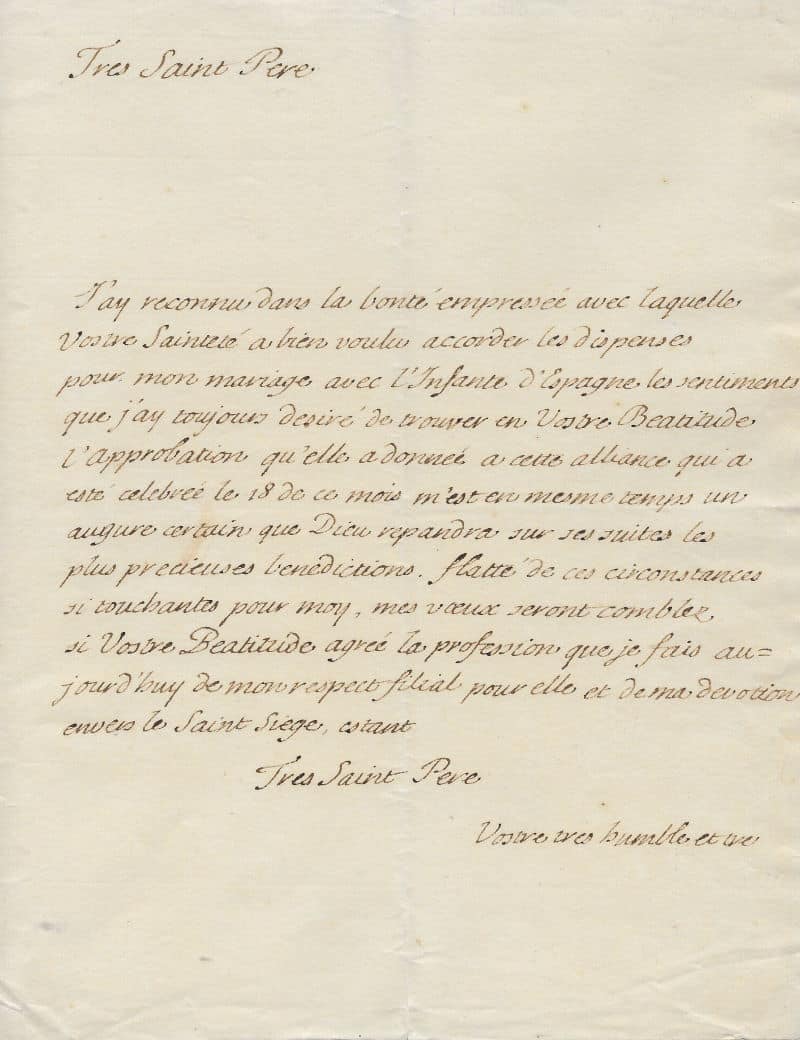 Tres Saint Pere
J'ay reconnu dans la bonté empressée avec laquelle
Vostre Sainteté a bien voulu accorder les dispenses
pour mon mariage avec l'Infante d'Espagne les sentiments
que j'ay toujours desiré de trouver en Vostre Beatitude
l'Approbation qu'elle a donnée a cette alliance qui a
esté celebreé le 18 de ce mois m'est en mesme temps un
augure certain que Dieu repandra sur ses suites les
plus precieuses benedictions. flatté de ces circonstances
si touchantes pour moy, mes vœux seront comblez
si Vostre Beatitude agreé la profession que je fais au=
jourd'huy de mon respect filial pour elle et de ma devotion
envers le Saint Siege, estant
Tres Saint Pere
Vostre tres humble et tre